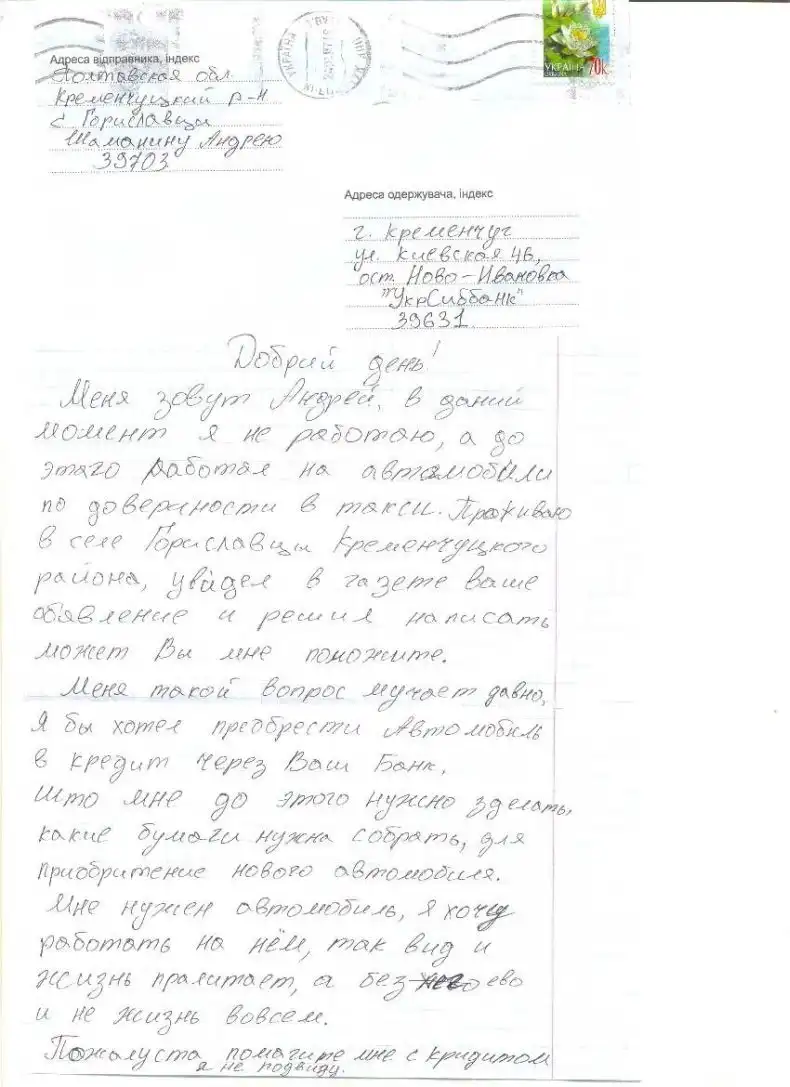 УКРАЇНА 70к
Адреса відправника, індекс
Полтавская обл
Кременчуцкий р-н
с Гориславци
Шаманину Андрею
39703
Адреса одержувача, індекс
г. Кременчуг
ул. Киевская 4б,
ост. Ново-Ивановка
"УкрСиббанк"
39631
Добрий день!
Меня зовут Андрей, в даний
момент я не работаю, а до
этаго работал на автомобили
по довериности в такси. Праживаю
в селе Гориславци Кременчуцкого
района, увидел в газете ваше
обявление и решил написать
может Вы мне поможите.
Меня такой вопрос мучает давно,
Я бы хотел преобрести Автомобиль
в кредит через Ваш Банк,
што мне до этого нужно зделать,
какие бумаги нужна собрать, для
приобритение нового автомобиля.
Мне нужен автомобиль, я хочу
работать на нём, так вид и
жизнь пралитает, а без ево
и не жизнь вовсем.
Пожалуста помагите мне с кридитом
я не подвиду.